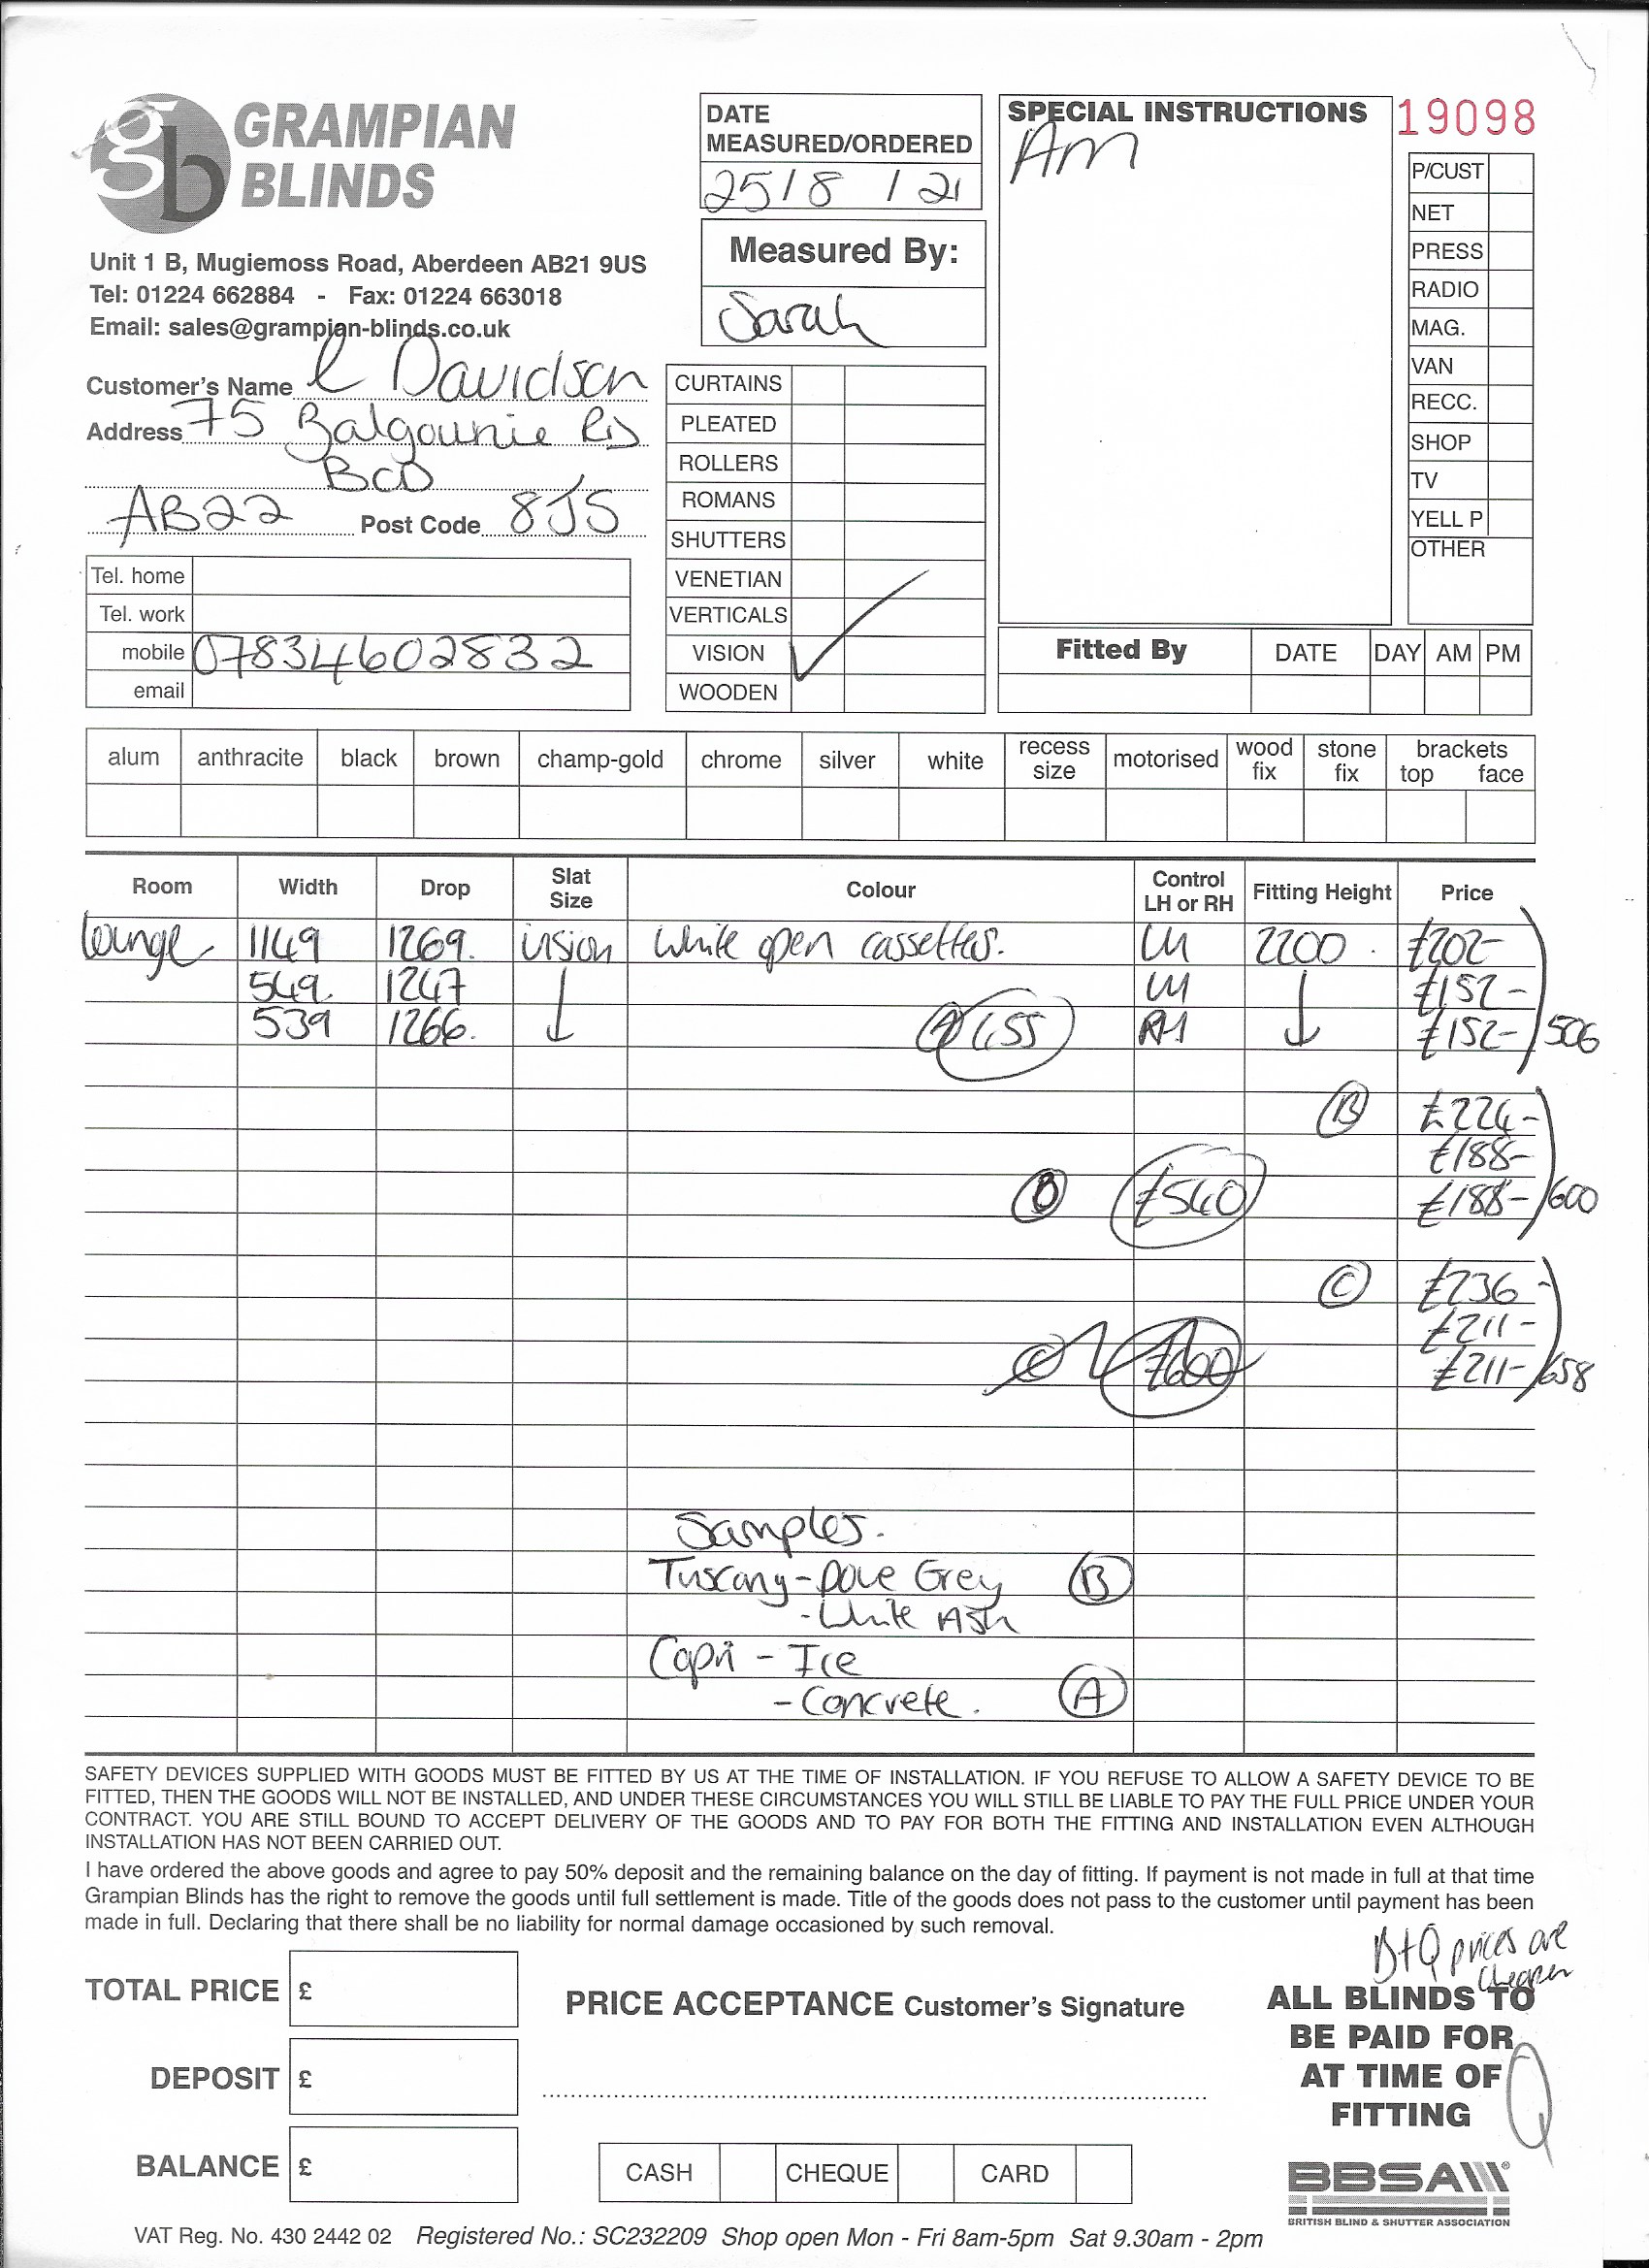 GRAMPIAN
BLINDS
Unit 1 B, Mugiemoss Road, Aberdeen AB21 9US
Tel: 01224 662884 - Fax: 01224 663018
Email: sales@grampian-blinds.co.uk
DATE
MEASURED/ORDERED
25/8 / 21
Measured By:
Sarah
SPECIAL INSTRUCTIONS
Am
19098
P/CUST
NET
PRESS
RADIO
MAG.
VAN
RECC.
SHOP
TV
YELL P
OTHER
Customer's Name Davidson
Address 75 Balgownie Rd
BoD
AB22 Post Code 8JS
Tel. home
Tel. work
mobile 07834602832
email
CURTAINS
PLEATED
ROLLERS
ROMANS
SHUTTERS
VENETIAN
VERTICALS
VISION
WOODEN
Fitted By DATE DAY AM PM
alum anthracite black brown champ-gold chrome silver white recess size motorised wood fix stone fix brackets top face
Room Width Drop Slat Size Colour Control LH or RH Fitting Height Price
lounge 1149 1269. vision White open cassettes. LH 2200 £202-
549. 1247 LH £152-
539 1266. A 455 RH £152- 506
B £224-
£188-
B £540 £188- 600
C £236-
£211-
C £600 £211- 658
Samples.
Tuscany - Dove Grey B
- White Ash
Capri - Ice
- Concrete. A
SAFETY DEVICES SUPPLIED WITH GOODS MUST BE FITTED BY US AT THE TIME OF INSTALLATION. IF YOU REFUSE TO ALLOW A SAFETY DEVICE TO BE
FITTED, THEN THE GOODS WILL NOT BE INSTALLED, AND UNDER THESE CIRCUMSTANCES YOU WILL STILL BE LIABLE TO PAY THE FULL PRICE UNDER YOUR
CONTRACT. YOU ARE STILL BOUND TO ACCEPT DELIVERY OF THE GOODS AND TO PAY FOR BOTH THE FITTING AND INSTALLATION EVEN ALTHOUGH
INSTALLATION HAS NOT BEEN CARRIED OUT.
I have ordered the above goods and agree to pay 50% deposit and the remaining balance on the day of fitting. If payment is not made in full at that time
Grampian Blinds has the right to remove the goods until full settlement is made. Title of the goods does not pass to the customer until payment has been
made in full. Declaring that there shall be no liability for normal damage occasioned by such removal.
B+Q prices are
cheaper
TOTAL PRICE £
PRICE ACCEPTANCE Customer's Signature
ALL BLINDS TO
BE PAID FOR
AT TIME OF
FITTING
DEPOSIT £
BALANCE £
CASH CHEQUE CARD
BBSA
BRITISH BLIND & SHUTTER ASSOCIATION
VAT Reg. No. 430 2442 02 Registered No.: SC232209 Shop open Mon - Fri 8am-5pm Sat 9.30am - 2pm